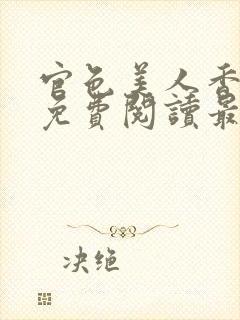 官色美人香
免費閱讀最
决绝